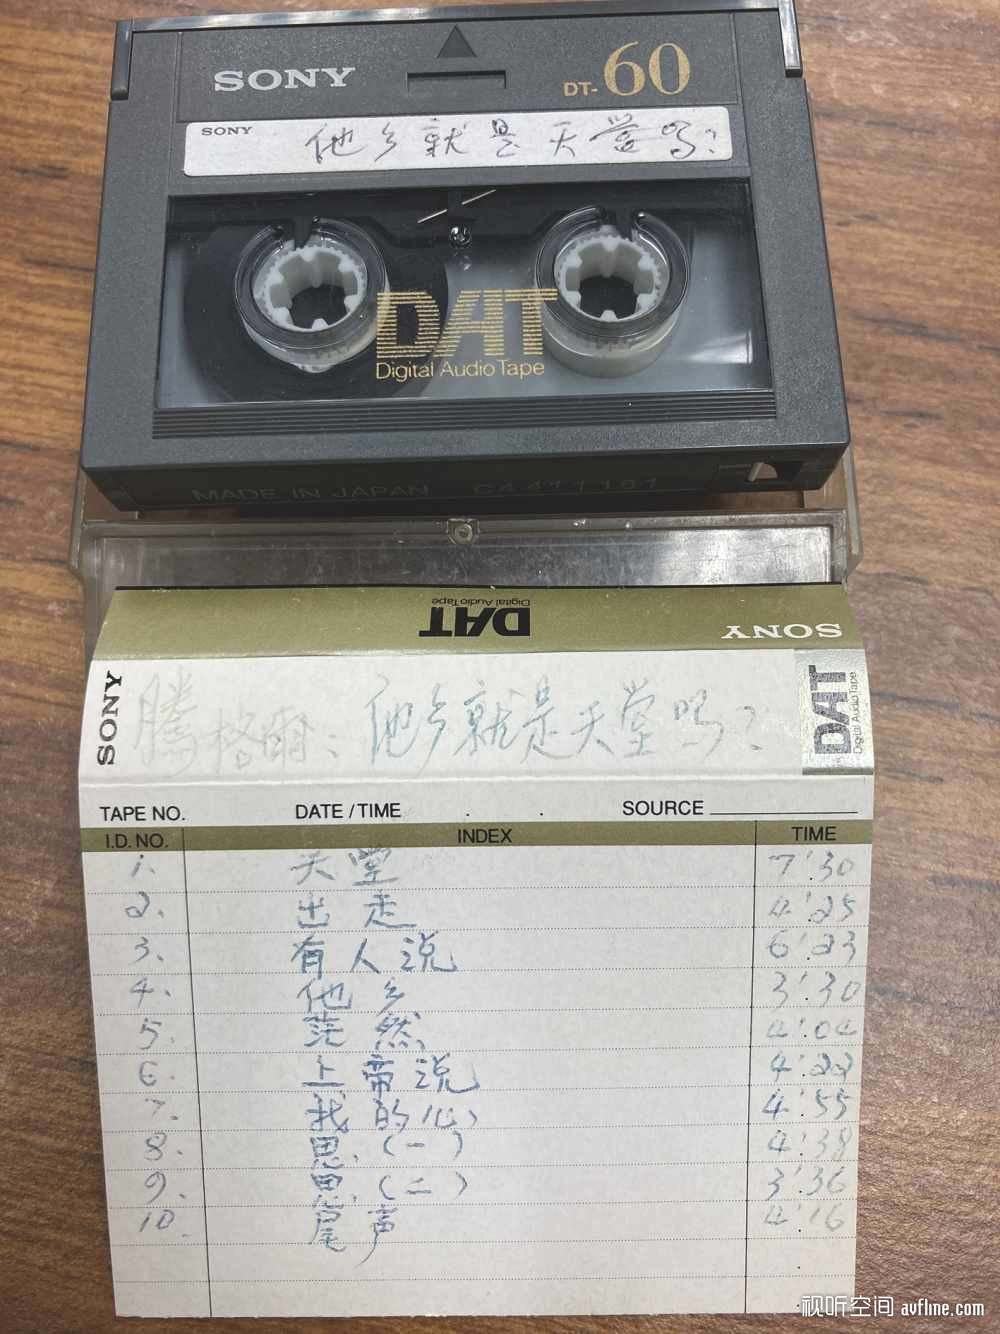 SONY
DT-60
SONY 他乡就是天堂吗?
DAT
Digital Audio Tape
MADE IN JAPAN C4411101
DAT
Digital Audio Tape
SONY
SONY
腾格尔:他乡就是天堂吗?
DAT
Digital Audio Tape
TAPE NO. DATE / TIME . . SOURCE
I.D. NO. INDEX TIME
1. 天堂 7'30
2. 出走 4'25
3. 有人说 6'23
4. 他乡 3'30
5. 茫然 4'04
6. 上帝说 4'22
7. 我的心 4'55
8. 思(一) 4'38
9. 思(二) 3'36
10. 尾声 4'16
视听空间 avfline.com